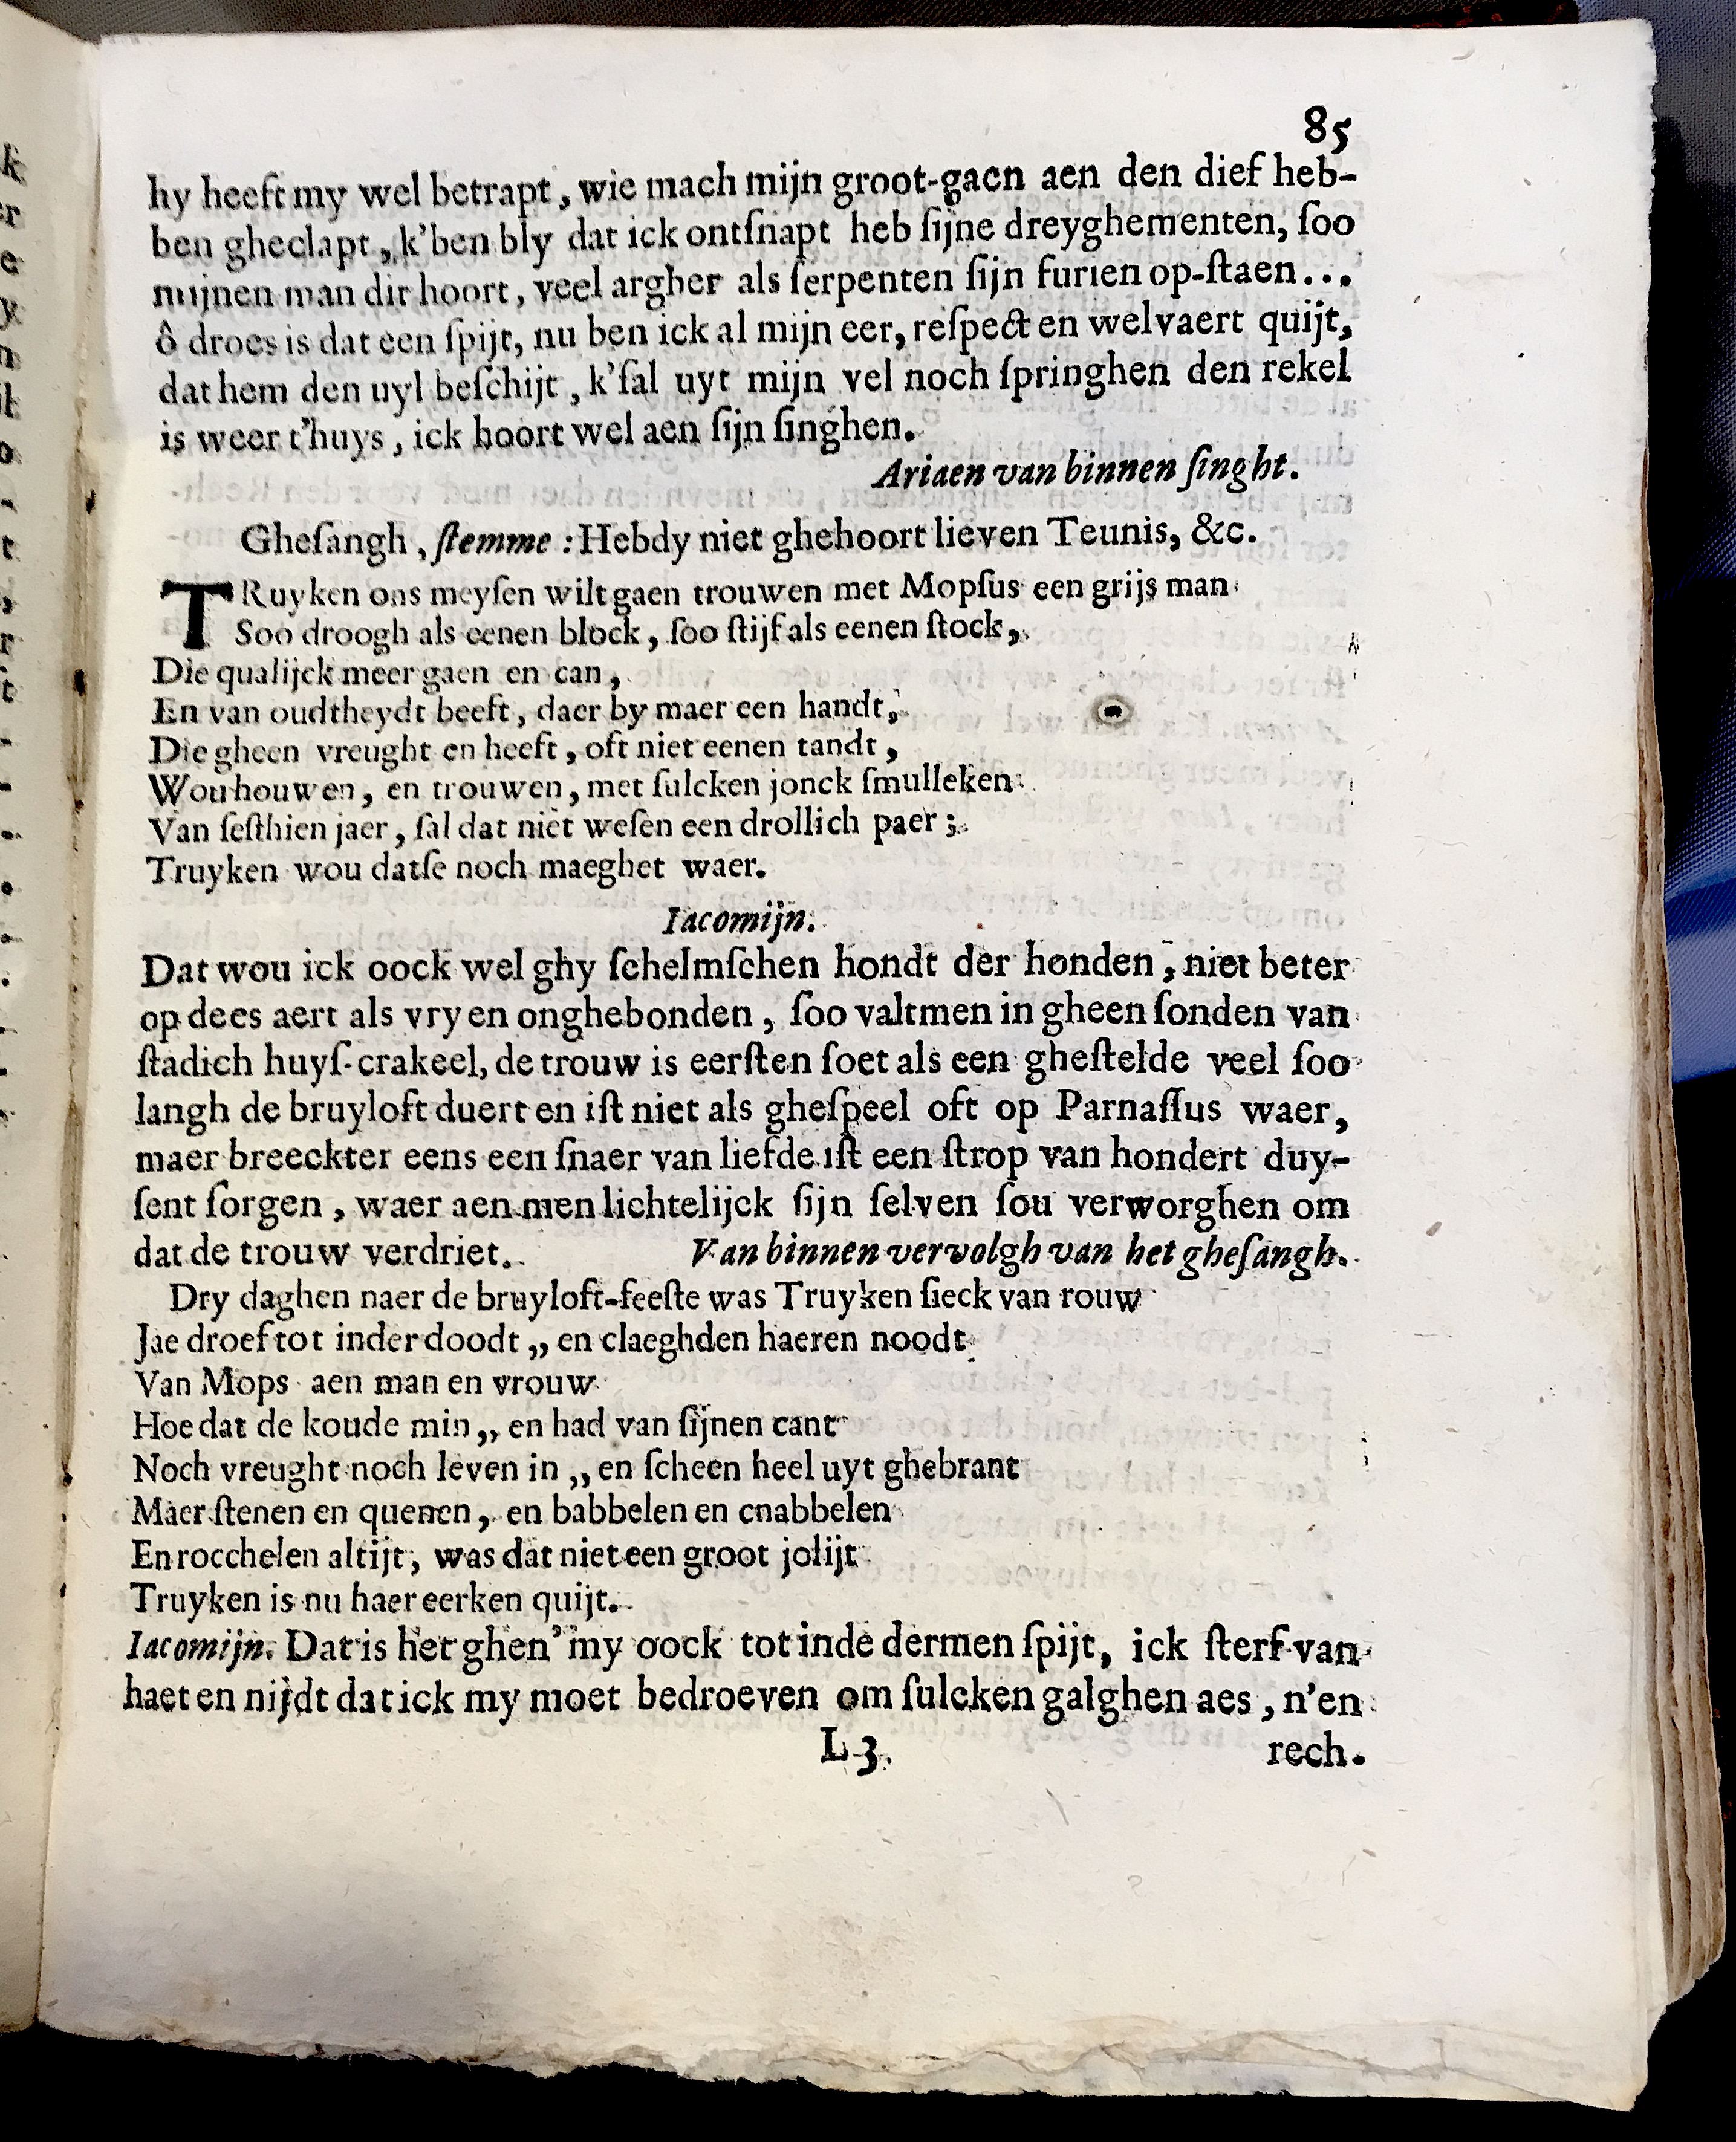 85
hy heeft my wel betrapt, wie mach mijn groot-gaen aen den dief heb-
ben gheclapt, k'ben bly dat ick ontſnapt heb ſijne dreyghementen, ſoo
mijnen man dit hoort, veel argher als ſerpenten ſijn furien op-ſtaen...
ô droes is dat een ſpijt, nu ben ick al mijn eer, reſpect en welvaert quijt,
dat hem den uyl beſchijt, k'ſal uyt mijn vel noch ſpringhen den rekel
is weer t'huys, ick hoort wel aen ſijn ſinghen.
Ariaen van binnen ſinght.
Gheſangh, ſtemme: Hebdy niet ghehoort lieven Teunis, &c.
TRuyken ons meyſen wilt gaen trouwen met Mopſus een grijs man
Soo droogh als eenen block, ſoo ſtijf als eenen ſtock,
Die qualijck meer gaen en can,
En van oudtheydt beeft, daer by maer een handt,
Die gheen vreught en heeft, oft niet eenen tandt,
Wou houwen, en trouwen, met ſulcken jonck ſmulleken
Van ſeſthien jaer, ſal dat niet weſen een drollich paer;
Truyken wou datſe noch maeghet waer.
Iacomijn.
Dat wou ick oock wel ghy ſchelmſchen hondt der honden, niet beter
op dees aert als vry en onghebonden, ſoo valtmen in gheen ſonden van
ſtadich huyſ-crakeel, de trouw is eerſten ſoet als een gheſtelde veel ſoo
langh de bruyloft duert en iſt niet als gheſpeel oft op Parnaſſus waer,
maer breeckter eens een ſnaer van liefde iſt een ſtrop van hondert duy-
ſent ſorgen, waer aen men lichtelijck ſijn ſelven ſou verworghen om
dat de trouw verdriet. Van binnen vervolgh van het gheſangh.
Dry daghen naer de bruyloft-feeſte was Truyken ſieck van rouw
Jae droef tot inder doodt,, en claeghden haeren noodt
Van Mops aen man en vrouw
Hoe dat de koude min,, en had van ſijnen cant
Noch vreught noch leven in,, en ſcheen heel uyt ghebrant
Maer ſtenen en quenen, en babbelen en cnabbelen
En rocchelen altijt, was dat niet een groot jolijt
Truyken is nu haer eerken quijt.
Iacomijn. Dat is het ghen' my oock tot inde dermen ſpijt, ick ſterf van
haet en nijdt dat ick my moet bedroeven om ſulcken galghen aes, n'en
L 3. rech.